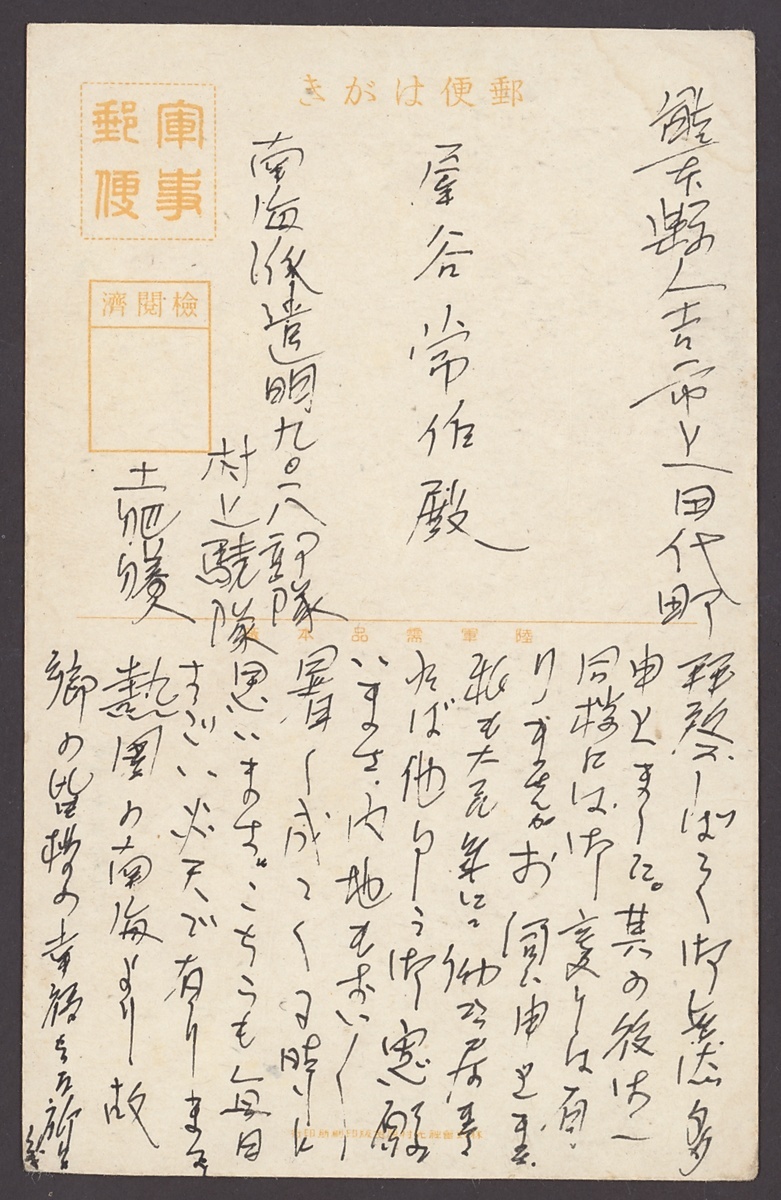 郵便はがき
軍事
郵便
検閲済
熊本縣人吉市上田代町
屋谷常作殿
南海派遣明九〇一八部隊
村上驍隊
土肥勝美
陸軍需品本廠
拝啓しばらく御無沙多
申上ました。其の後は
同様には御変りは有
りませんかお伺い申上ます。
私も大元気にて働いて居
れば他事乍ら御安心
います。内地もおいおい
暑く成てくる時しと
思います。こちらも毎日
すごい炎天で有ります
熱国の南海より故
郷の皆様の幸福をお祈